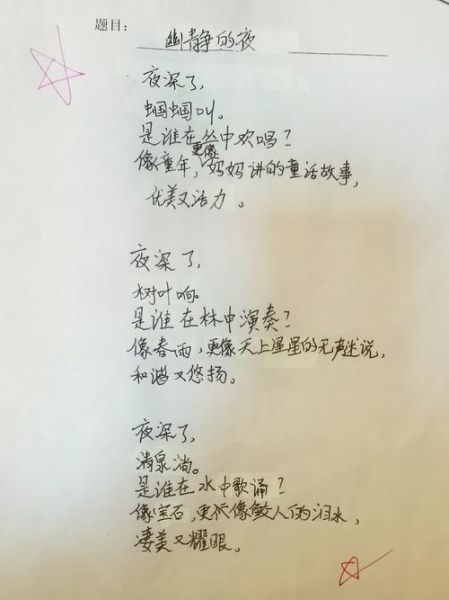 题目: 幽静的夜
夜深了,
蝈蝈叫。
是谁在丛中欢唱?
像童年,更像妈妈讲的童话故事,
优美又活力。
夜深了,
树叶响。
是谁在林中演奏?
像春雨,更像天上星星的无声述说,
和谐又悠扬。
夜深了,
清泉淌。
是谁在水中歌诵?
像宝石,更像鲛人的泪水,
凄美又耀眼。